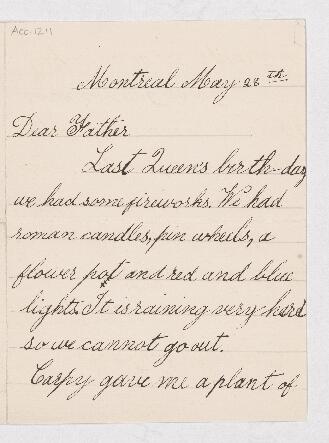 Acc. 1211
Montreal May 28th
Dear Father
Last Queen's birth-day
we had some fireworks. We had
roman candles, pin wheels, a
flower pot and red and blue
lights. It is raining very hard
so we cannot go out.
Carpy gave me a plant of